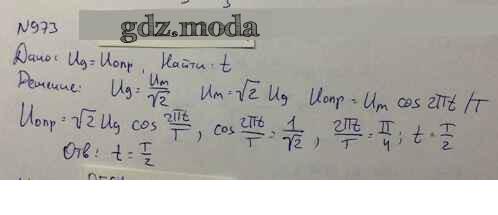 gdz.moda
N973
Дано: Uд = Uопр, Найти: t
Решение: Uд = Um/√2 Um = √2 Uд Uопр = Um cos 2πt/T
Uопр = √2 Uд cos 2πt/T, cos 2πt/T = 1/√2, 2πt/T = π/4; t = T/2
Отв: t = T/2